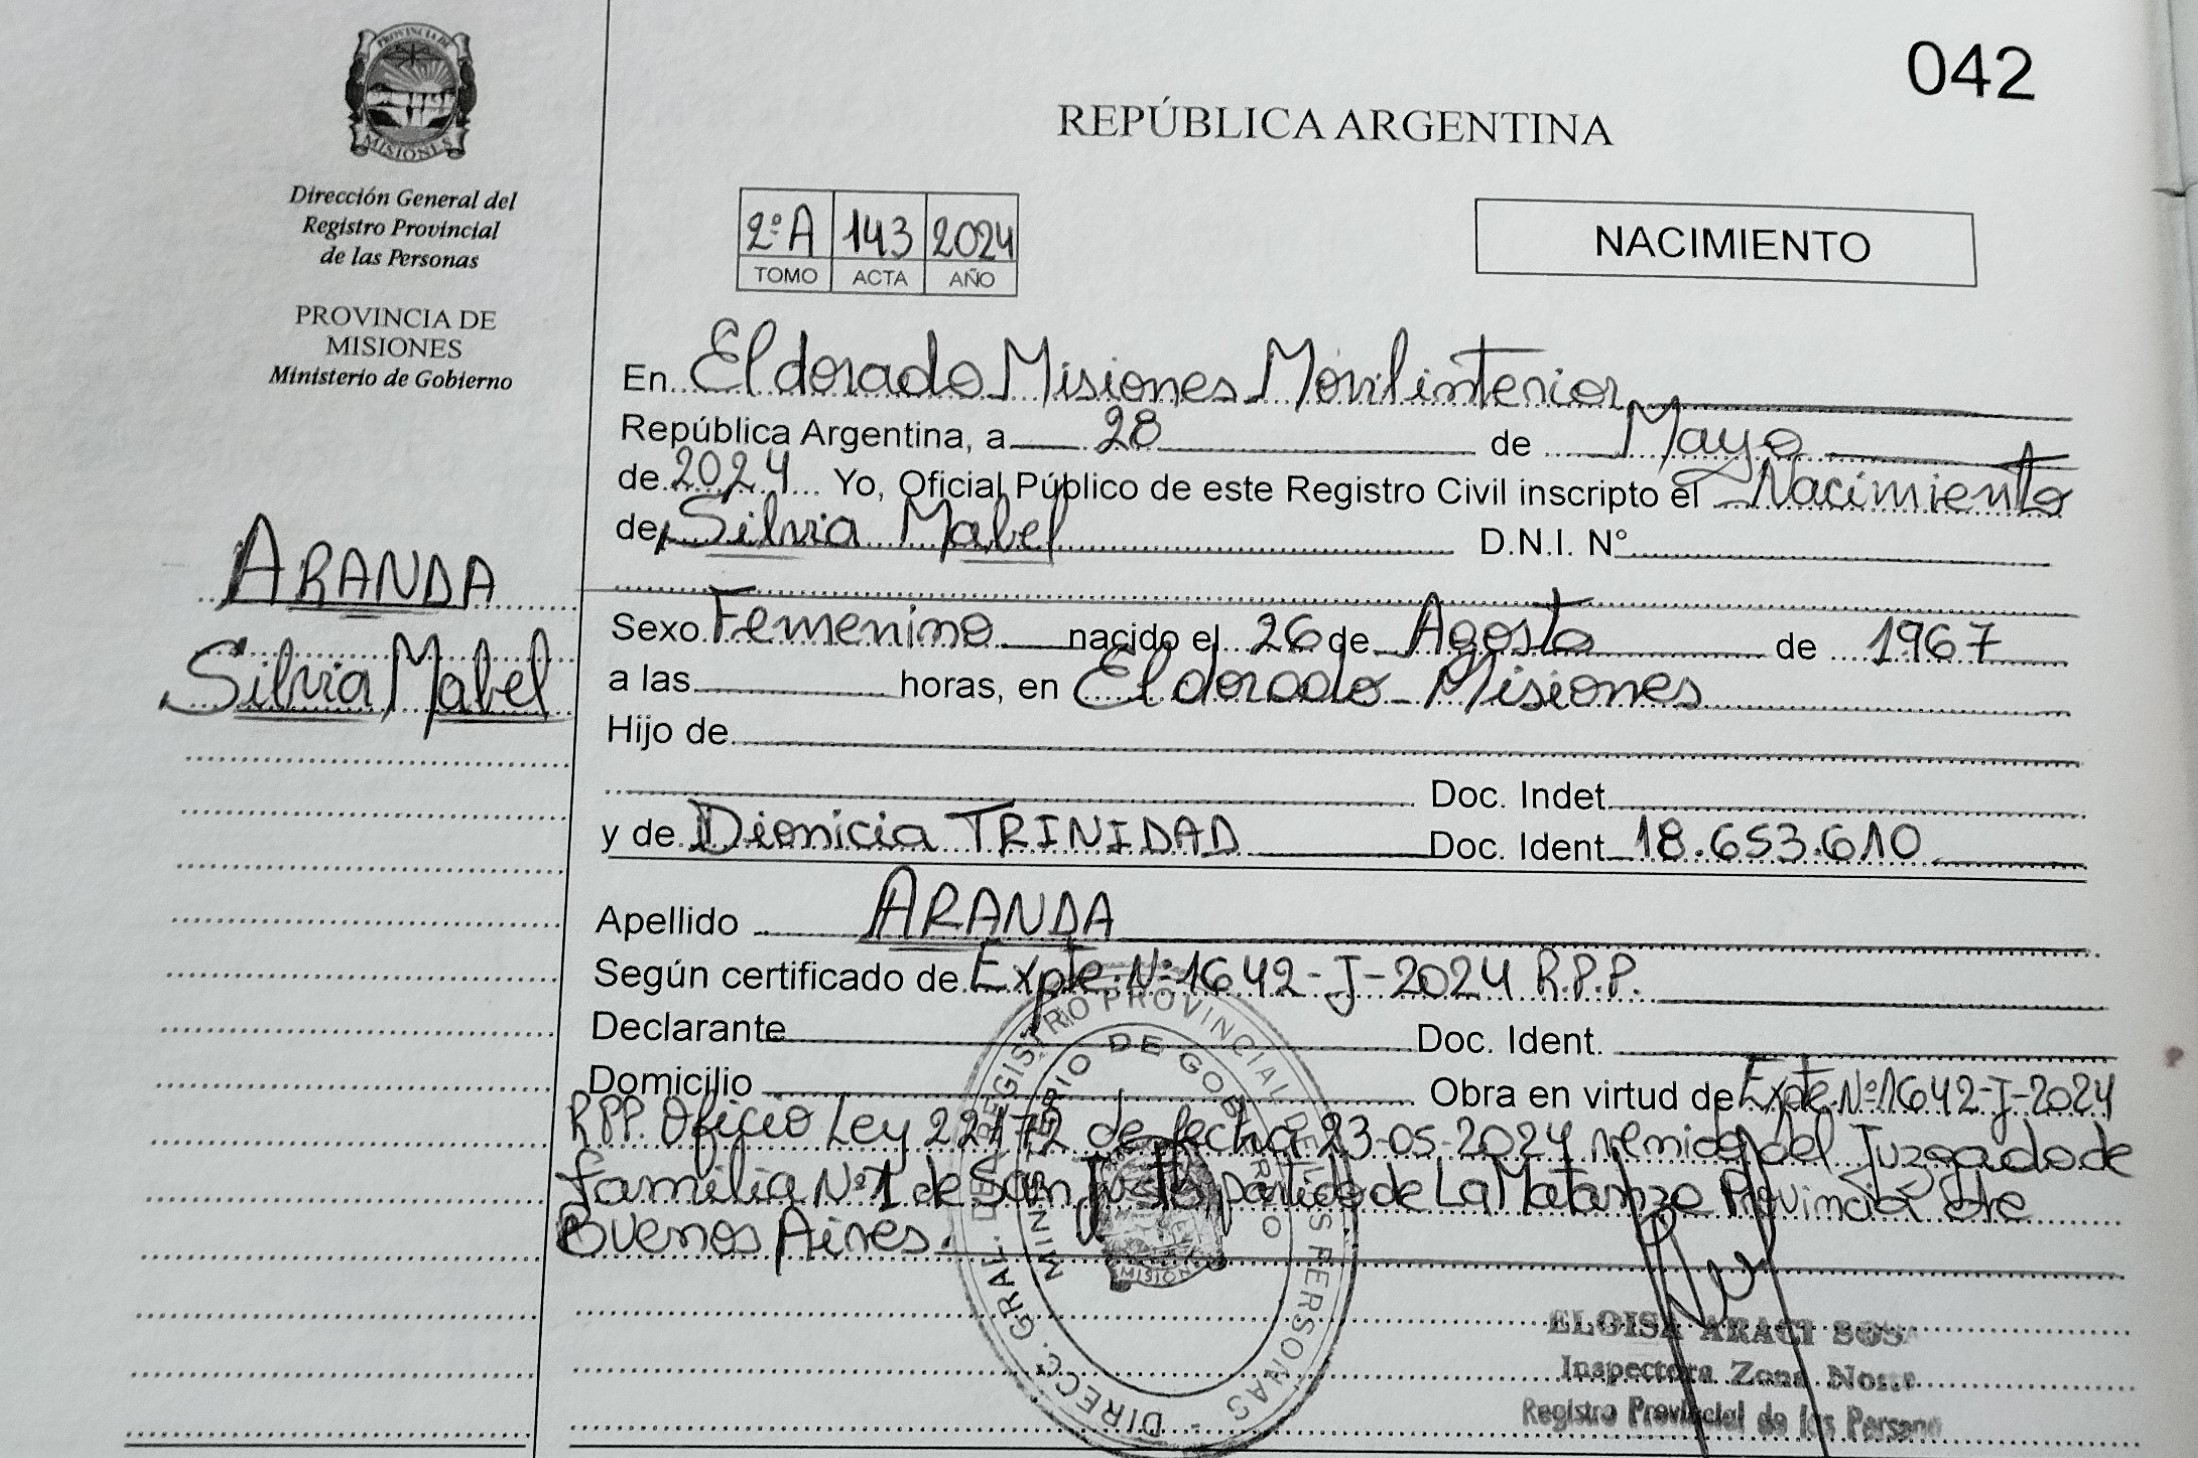 PROVINCIA DE
MISIONES
Dirección General del
Registro Provincial
de las Personas
PROVINCIA DE
MISIONES
Ministerio de Gobierno
ARANDA
Silvia Mabel
042
REPÚBLICA ARGENTINA
2º A 143 2024
TOMO ACTA AÑO
NACIMIENTO
En Eldorado Misiones Móvil interior
República Argentina, a 28 de Mayo
de 2024 Yo, Oficial Público de este Registro Civil inscripto el Nacimiento
de Silvia Mabel D.N.I. N°
Sexo Femenino nacido el 26 de Agosto de 1967
a las horas, en Eldorado - Misiones
Hijo de
Doc. Indet.
y de Dionicia TRINIDAD Doc. Ident 18.653.610
Apellido ARANDA
Según certificado de Expte. Nº 1642-J-2024 R.P.P.
Declarante Doc. Ident.
Domicilio Obra en virtud de Expte. Nº 1642-J-2024
RPP. Oficio Ley 22172 de fecha 23-05-2024 venido del Juzgado de
familia Nº 1 de San Justo, partido de La Matanza Provincia de
Buenos Aires.
DIRECC. GRAL. DEL REGISTRO PROVINCIAL DE LAS PERSONAS
MINISTERIO DE GOBIERNO
MISIONES
ELOISA ARACI SOSA
Inspectora Zona Norte
Registro Provincial de las Personas